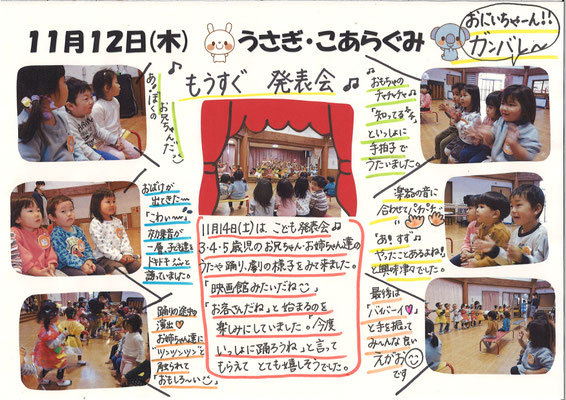 11月12日(木) うさぎ・こあらぐみ
おにいちゃーん!!
ガンバレ〜
♪もうすぐ 発表会♪
あ!ぼくの
お兄ちゃんだ
おもちゃの
チャチャチャ♪
「知ってる〜」と
いっしょに
手拍子で
うたいました。
おばけが
出てきた…
「こわい〜」
効果音が
一層、子ども達を
ドキドキ
誘っていました。
楽器の音に
合わせてパチパチ
「あ!すず
やったことあるよね!」
と興味津々でした。
11月14日(土)は こども発表会♪
3・4・5歳児のお兄ちゃん・お姉ちゃん達の
うたや踊り、劇の様子をみて来ました。
「映画館みたいだね」
「お客さんだね」と始まるのを
楽しみにしていました。「今度
いっしょに踊ろうね」と言って
もらえて とても嬉しそうでした。
踊りの途中の
演出♥
お姉ちゃん達に
"ツンツンツン"と
触られて
「おもしろ〜い」
最後は
「バイバーイ♥」
と手を振って
み〜んな良い
えがお
です